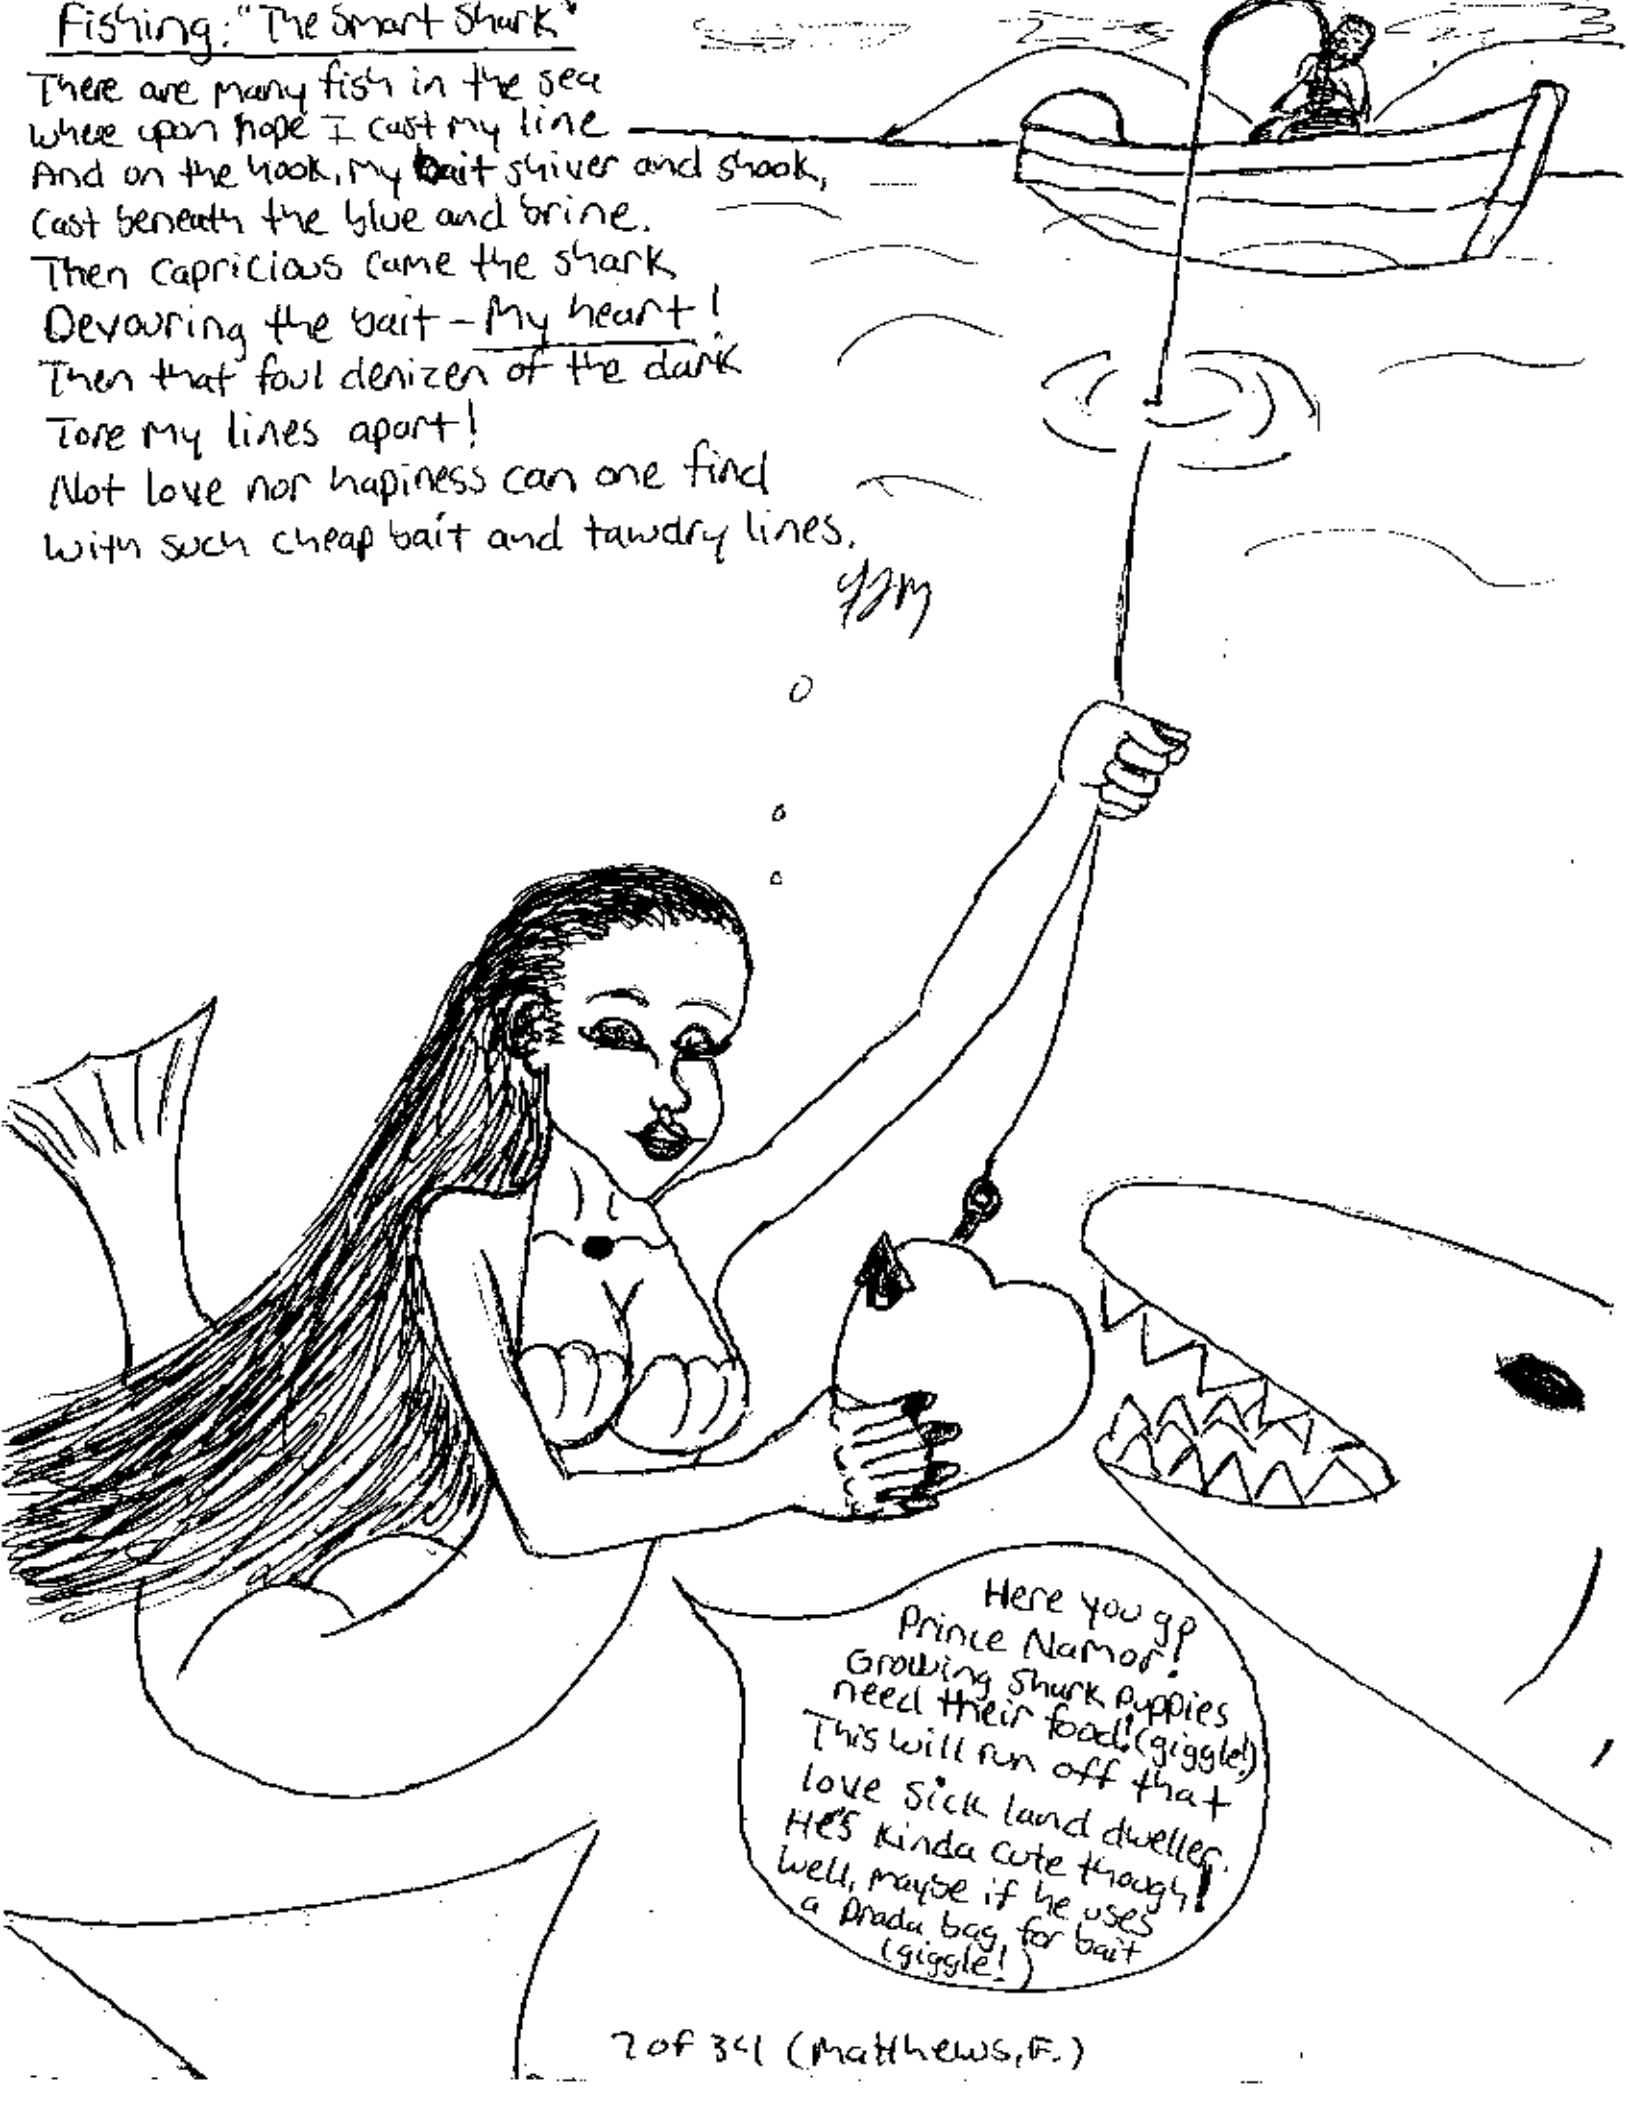 Fishing: "The Smart Shark"
There are many fish in the sea
where upon hope I cast my line
And on the hook, my bait shiver and shook,
Cast beneath the blue and brine.
Then capricious came the shark
Devouring the bait - My heart!
Then that foul denizen of the dark
Tore my lines apart!
Not love nor hapiness can one find
With such cheap bait and tawdry lines.
Here you go
Prince Namor!
Growing Shark Puppies
need their food! (giggle!)
This will run off that
love sick land dweller.
He's kinda cute though!
Well, maybe if he uses
a Prada bag, for bait
(giggle!)
7 of 34 (Matthews, F.)